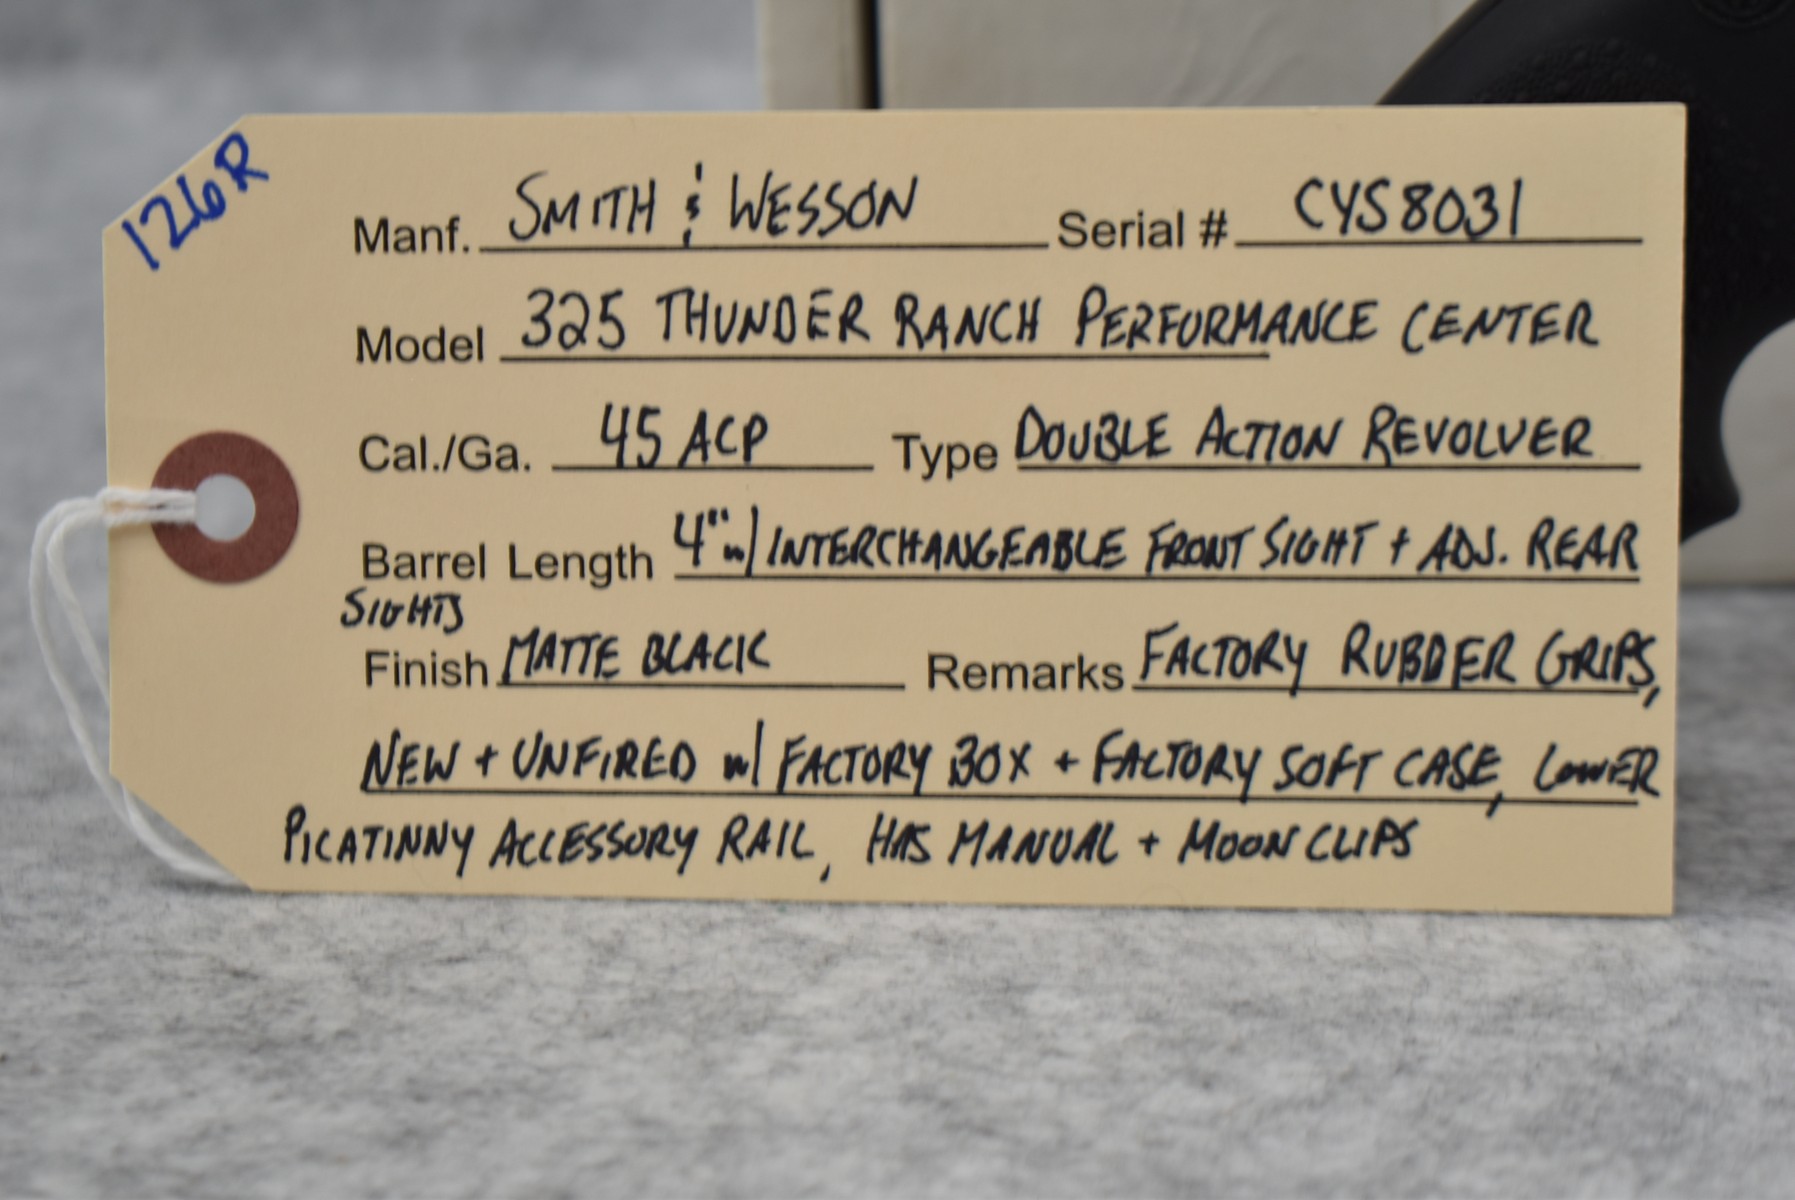 126R
Manf. SMITH & WESSON Serial # CYS8031
Model 325 THUNDER RANCH PERFORMANCE CENTER
Cal./Ga. 45 ACP Type DOUBLE ACTION REVOLVER
Barrel Length 4" w/ INTERCHANGEABLE FRONT SIGHT + ADJ. REAR
SIGHTS
Finish MATTE BLACK Remarks FACTORY RUBBER GRIPS,
NEW + UNFIRED w/ FACTORY BOX + FACTORY SOFT CASE, LOWER
PICATINNY ACCESSORY RAIL, HAS MANUAL + MOON CLIPS